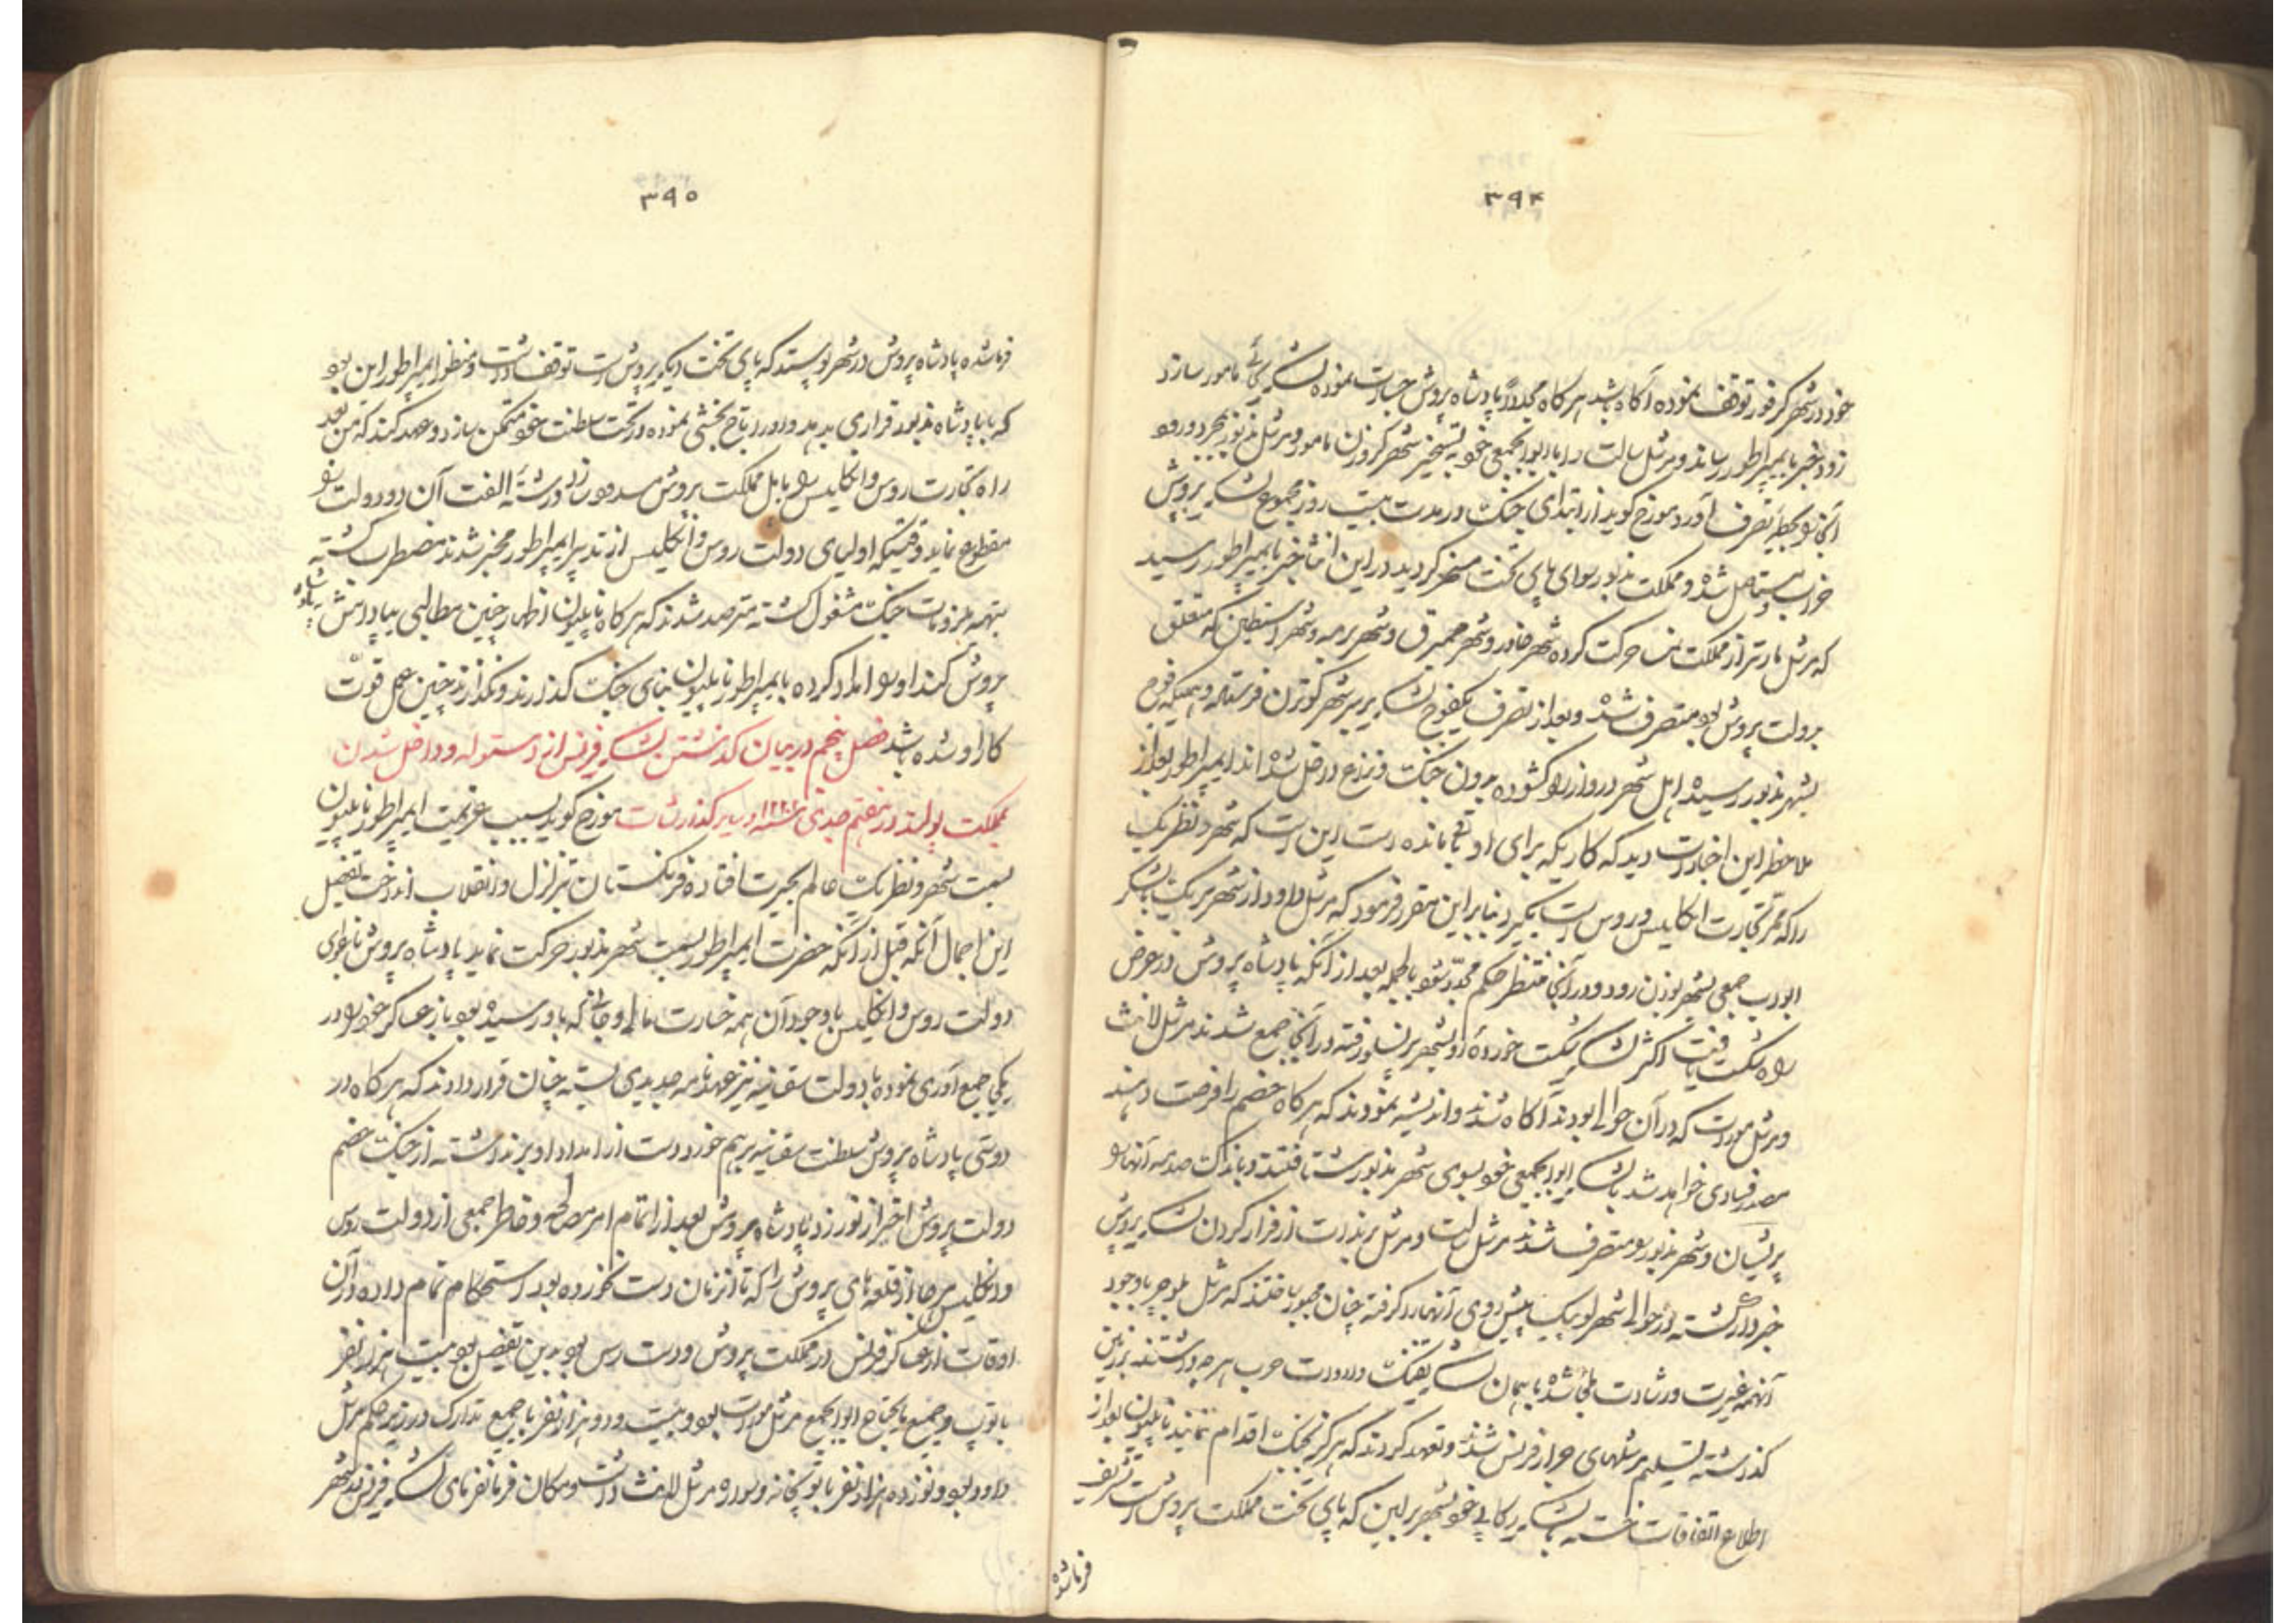 ۳۹۴
خود در شهر کرفور توقف نموده آگاه باشد هر کاه مجدداً پادشاه پروش جسارت نموده لشکر کشی مامور سازد
زود خبر بایمپراطور رساند و مرشل سالت را با ابوابجمعی خود به تسخیر شهر کزون مامور و مرشل مذبور بمجرد ورود
آنجا را بحیطه تصرف آورد مورخ کوید از ابتدای جنک در مدت بیست روز مجموع لشکر پروش
خراب و مستاصل شده و مملکت مذبور سوای پای تخت مسخر کردید در این اثنا خبر بایمپراطور رسید
که مرشل مارتر از مملکت حرکت کرده شهر و شهر و شهر و شهر که متعلق
بدولت پروش بود متصرف شده و بعد از تصرف یکفوج لشکر بر سر شهر کوترن فرستاده و همینکه فوج
بشهر مذبور رسیده اهل شهر دروازه را کشوده بدون جنک و نزاع داخل شده اند ایمپراطور بعد از
ملاحظه این اخبارات دید که کاریکه برای او باقی مانده است این است که شهر و نظریک
را که ممر تجارت انکلیس و روس است بگیرد بنابر این مقرر فرمود که مرشل داود از شهر با لشکر
ابواب جمعی بشهر رود و در آنجا منتظر حکم مجدد شود بالجمله بعد از آنکه پادشاه پروش در عرض
راه شکست یافت اکثر لشکر شکست خورده او بشهر رفته در آنجا جمع شدند مرشل لانث
و مرشل مورات که در آن حوالی بودند آکاه شدند و اندیشه نمودند که هر کاه خصم را فرصت دهند
مصدر فسادی خواهد شد با لشکر ابوابجمعی خود بسوی شهر مذبور شتافتند و باندک صدمه آنها را
پریشان و شهر مذبور را متصرف شدند مرشل سالت و مرشل برندات از فرار کردن لشکر پروش
خبردار کشته در حوالی شهر لوبیک پیش روی آنها را کرفته چنان مجبور ساختند که مرشل بلوچر با وجود
آنهمه غیرت و رشادت ملجأ شده با همان لشکر تفنک و ادوات حرب هر چه داشتند بزمین
کذاشته تسلیم مرشلهای جرار فرنس شدند و تعهد کردند که هرکز بجنک اقدام ننمایند ناپلیون بعد از
اطلاع اتفاقات با لشکر رکابی خود بشهر برلین که پای تخت مملکت پروش است تشریف
فرما شده
۳۹۵
فرما شده پادشاه پروش در شهر که پای تخت دیکر پروش است توقف داشت و منظور ایمپراطور این بود
که با پادشاه مذبور قراری بدهد و او را تاج بخشی نموده در تخت سلطنت خود متمکن سازد و عهد کند که من بعد
راه تجارت روس و انکلیس را با اهل مملکت پروش مسدود سازد و رشته الفت آن دو دولت را
مقطوع نماید وقتیکه اولیای دولت روس و انکلیس از تدبیر ایمپراطور مخبر شدند مضطرب کشته
بتهیه ملزومات جنک مشغول کشته مترصد شدند که هر کاه ناپلیون اظهار چنین مطالبی بپادشاه
پروش کند او را امداد کرده با ایمپراطور ناپلیون بنای جنک کذارند و نکذارند چنین عمل قوت
کار او شده باشد فصل پنجم در بیان کذشتن لشکر فرنس از وستوله و داخل شدن
بمملکت پولند در هفتم جدی سنه ۱۲۲۱ و سایر کذارشات مورخ کوید سبب عزیمت ایمپراطور ناپلیون
بسمت شهر و نظریک عالم بحیرت افتاده فرنکستان بتزلزل و انقلاب انداخت تفصیل
این اجمال آنکه قبل از آنکه حضرت ایمپراطور بسمت شهر مذبور حرکت نماید پادشاه پروش باغوای
دولت روس و انکلیس با وجود آن همه خسارت مالی و جانی که باو رسیده بود باز عساکر خود را در
یکجا جمع آوری نموده با دولت سقنیه نیز عهدنامه جدیدی بسته چنان قرار دادند که هر کاه در
دوستی پادشاه پروش سلطنت سقنیه برهم خورد دست از امداد او برنداشته از جنک خصم
دولت پروش احتراز نورزد پادشاه پروش بعد از اتمام امر مصالحه و خاطر جمعی از دولت روس
و انکلیس هر جا از قلعه های پروش را که تا آنزمان دست نخورده بود استحکام تمام داده در آن
اوقات از عساکر فرنس در مملکت پروش و دست رس بود بدین تفصیل بود بیست هزار نفر
با توپ و جمیع مایحتاج ابوابجمع مرشل مورات بود و بیست و دو هزار نفر با جمیع تدارک در زیر حکم مرشل
داود بود و نوزده هزار نفر با توپخانه و سواره مرشل لانث داشت و مکان فرمانفرمای لشکر فرنس شهر